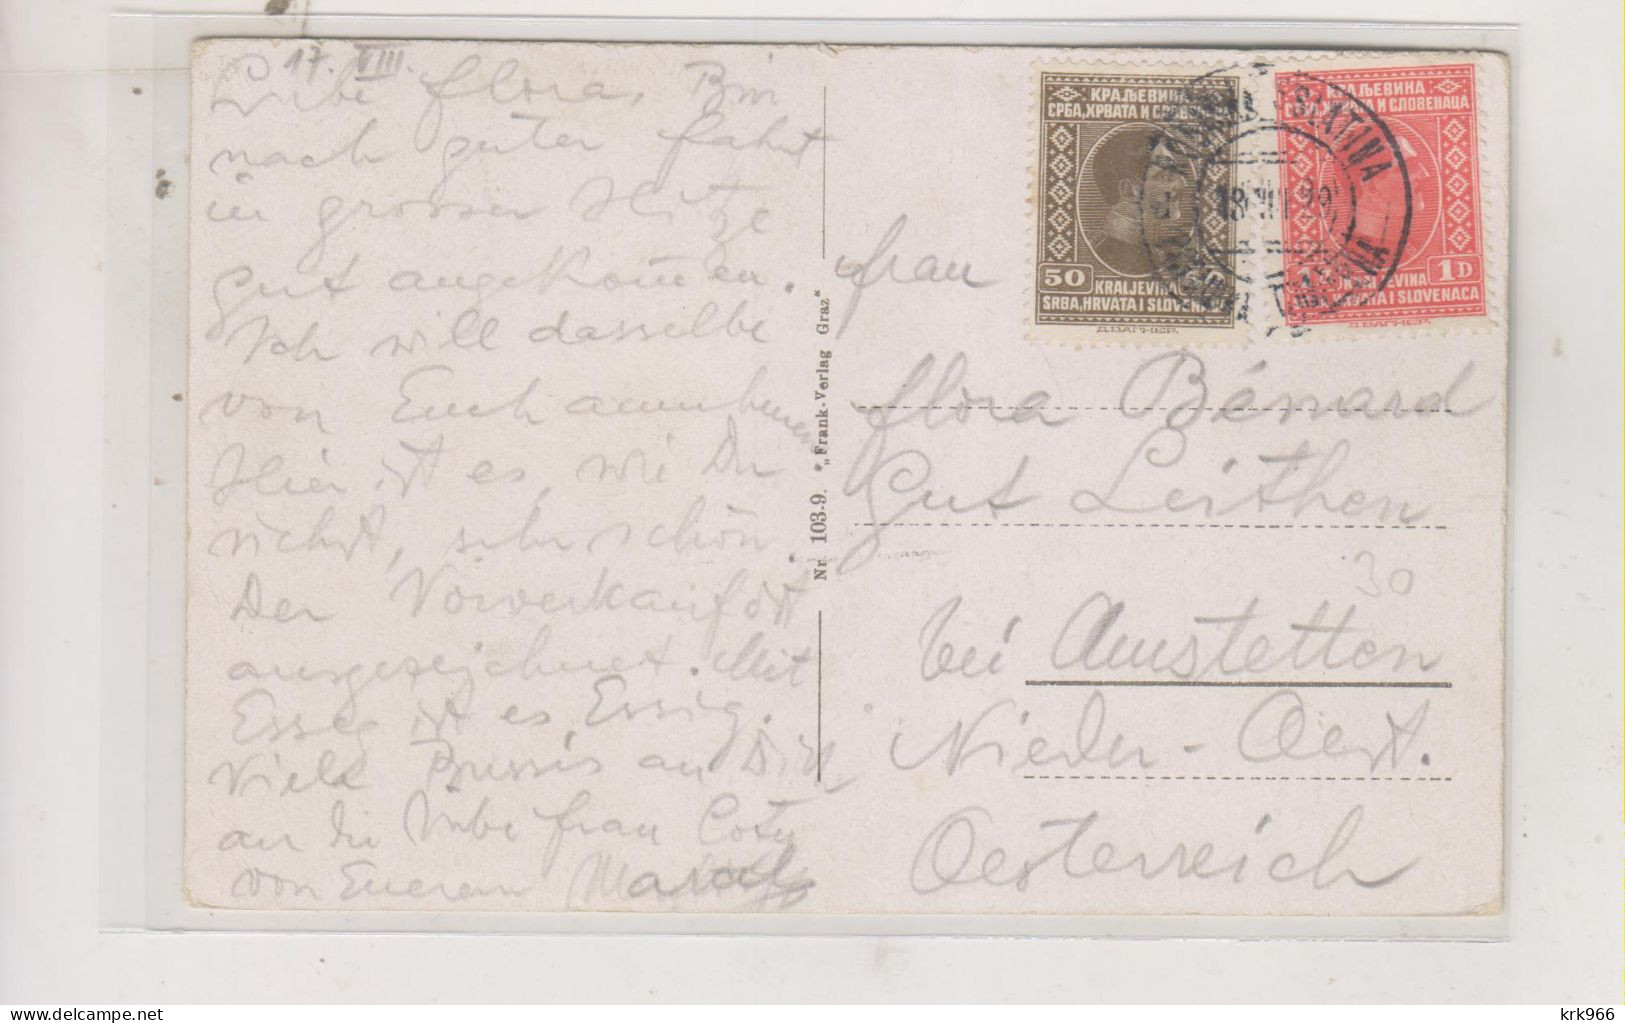 17. VIII.
Liebe Flora, Bin
nach guter Fahrt
in grosser Hitze
gut angekom̄en.
Ich will dasselbe
von Euch annehmen
Hier ist es, wie Du
siehst, sehr schön
Der Vorverkauf ist
ausgezeichnet. Mit
Esseg ist es Essig.
Viele Bussis an Dich
an die liebe Frau Coty
von Eurem
Nr. 103-9. „Frank-Verlag Graz"
КРАЉЕВИНА
СРБА, ХРВАТА И
50
KRALJEVINA
SRBA, HRVATA I SLOVENACA
Д.ВАГНЕР.
КРАЉЕВИНА
И СЛОВЕНАЦА
1D
SRBA, HRVATA I SLOVENACA
Д.ВАГНЕР.
SLATINA
18
Frau
Flora Bénard
Gut Leithen
30
bei Amstetten
Nieder-Oest.
Oesterreich
krk966